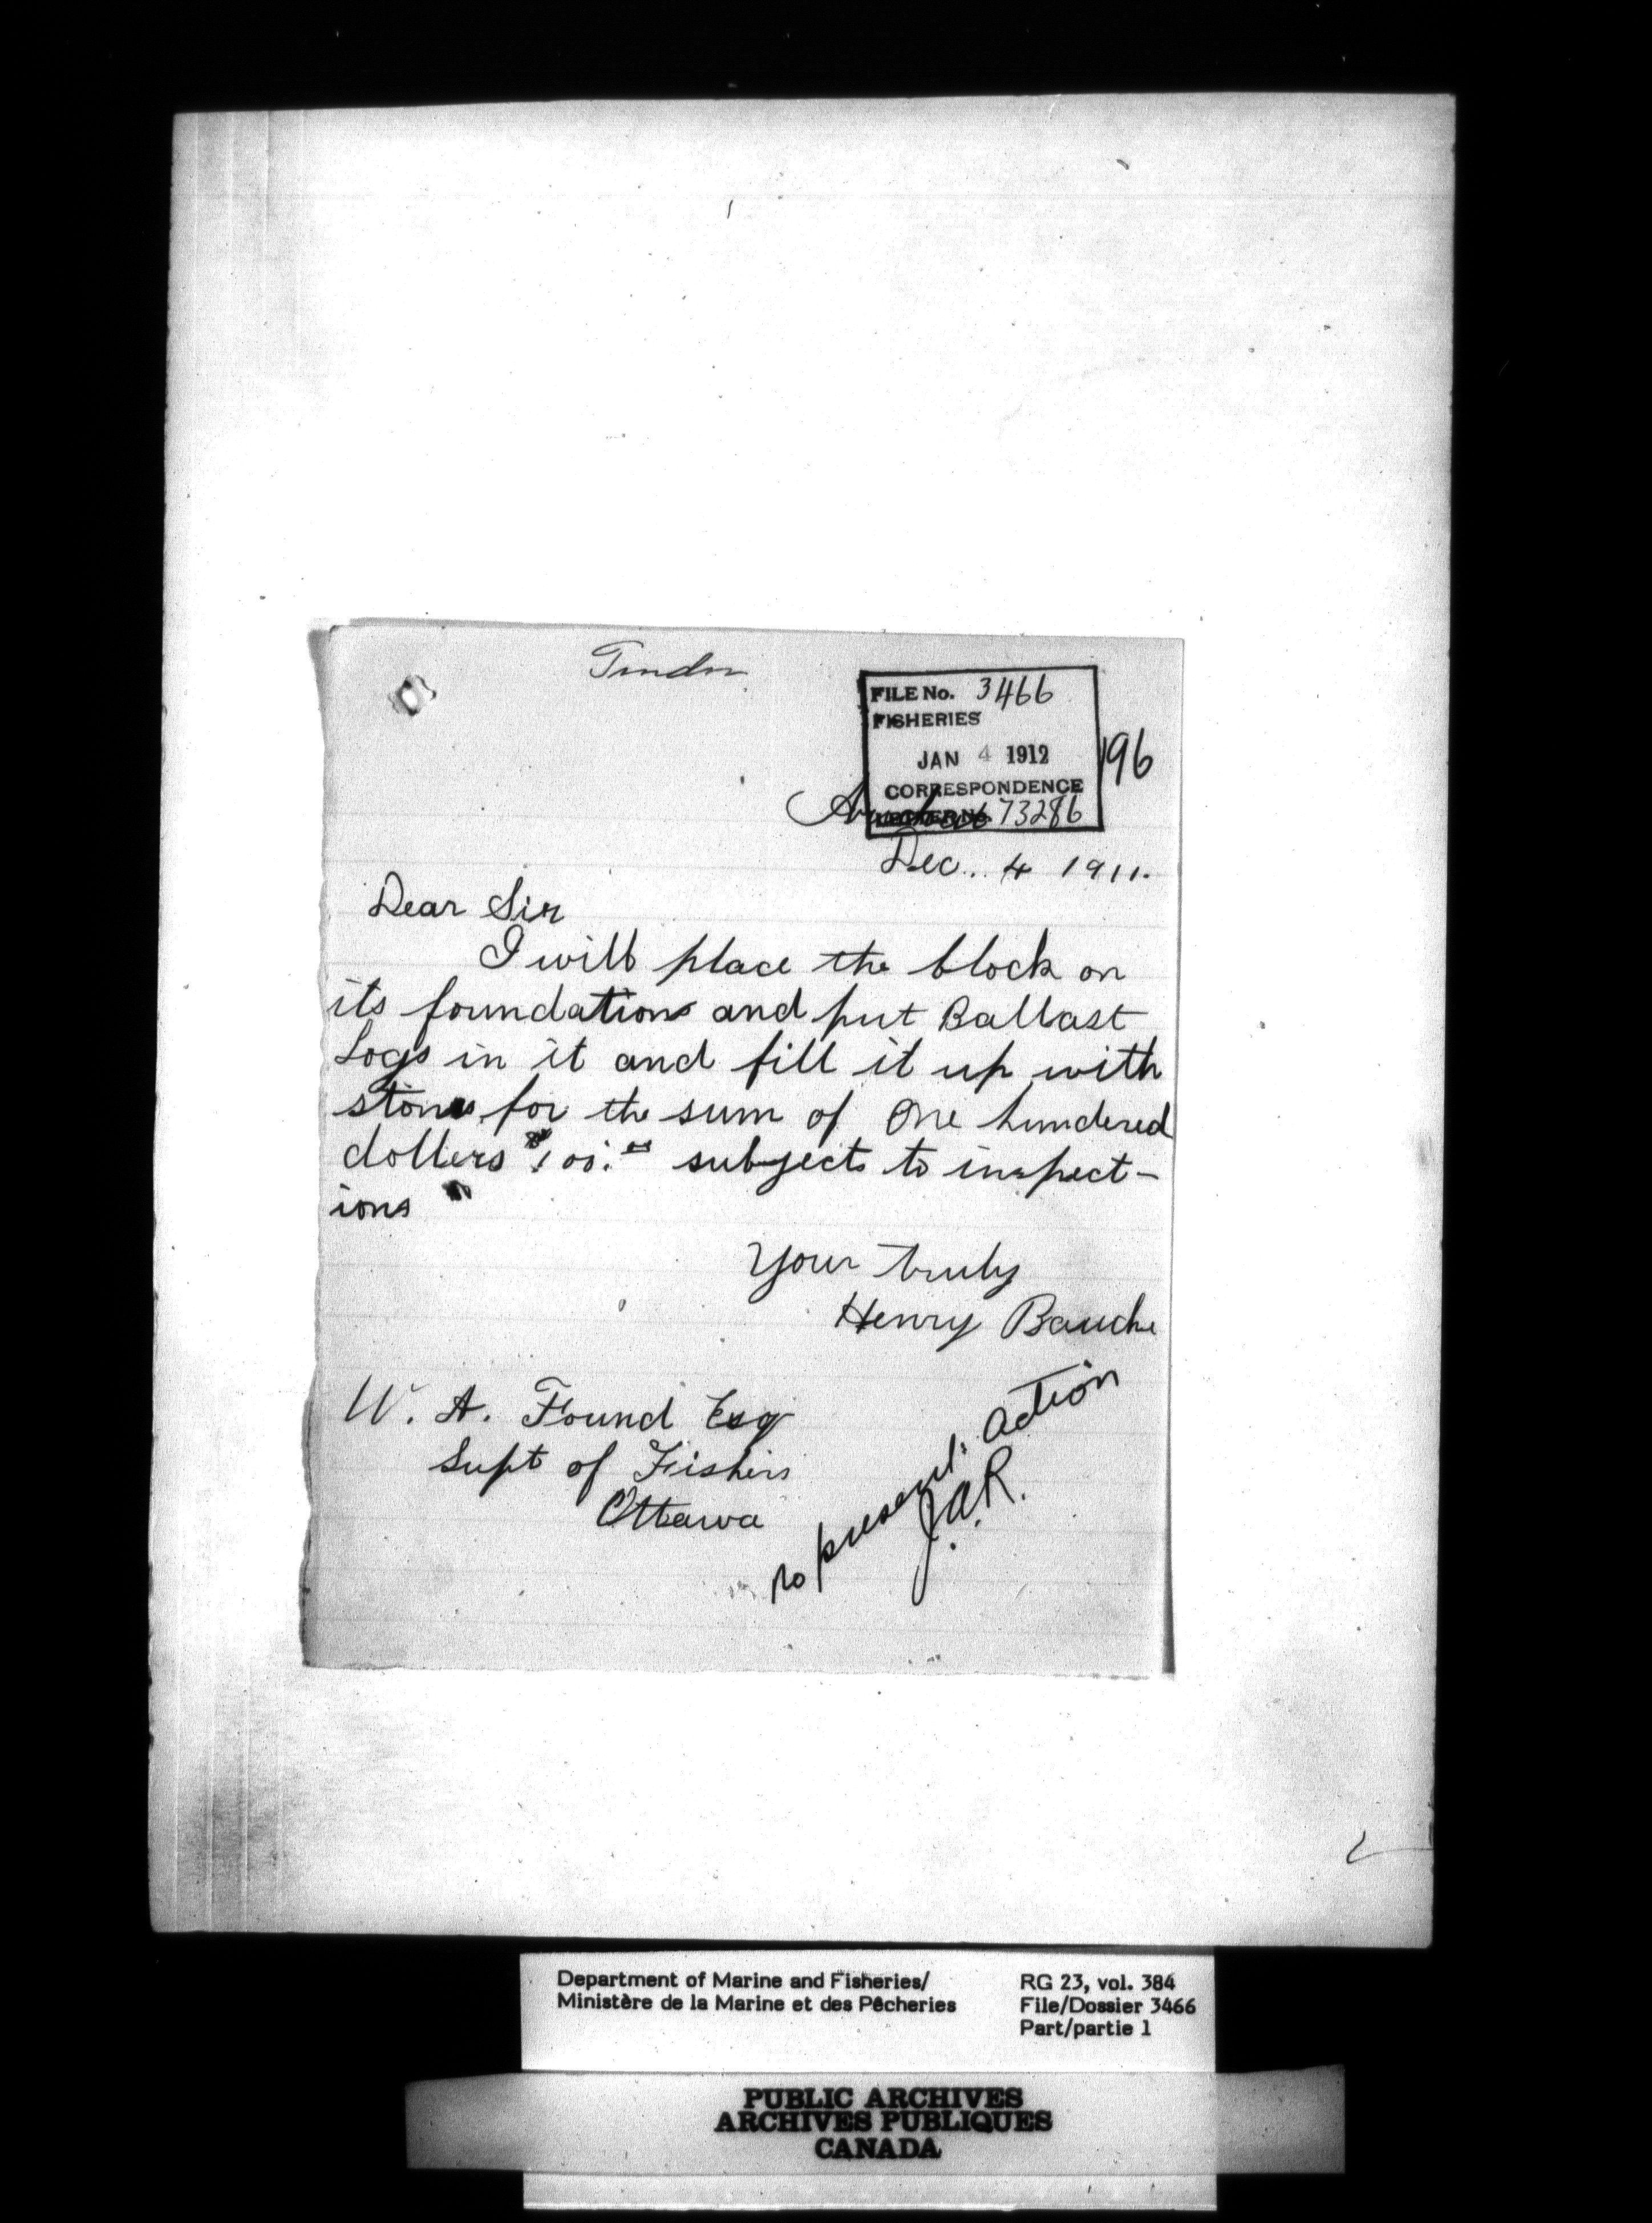 Tender
FILE No. 3466
FISHERIES
JAN 4 1912
196
CORRESPONDENCE
73286
Arichat
Dec.. 4 1911.
Dear Sir
I will place the block on
its foundations and put Ballast
Logs in it and fill it up with
stones for the sum of One hundered
dollers $100.00 subjects to inspect-
ions
Your truly
Henry Bauche
W. A. Found Esq
Supt of Fishers
Ottawa
no present action
J.A.R.
Department of Marine and Fisheries/
Ministère de la Marine et des Pêcheries
RG 23, vol. 384
File/Dossier 3466
Part/partie 1
PUBLIC ARCHIVES
ARCHIVES PUBLIQUES
CANADA